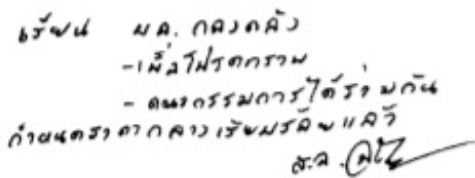 เรียน ผอ. กลางคลัง
- เพื่อโปรดทราบ
- คณะกรรมการได้ร่วมกัน
กำหนดราคากลางเรียบร้อยแล้ว
ส.อ.